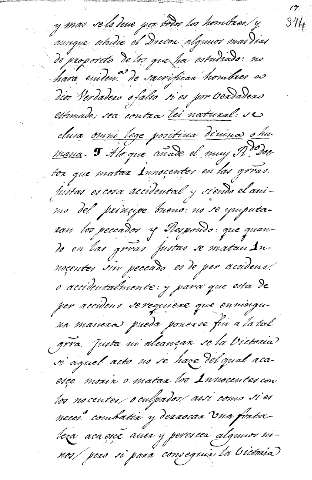 17
374
y mas se le deve por todos los hombres/ y
aunque estudie el Doctor algunos mas dias
de proposito de los que ha estudiado: no
hará evidenª de sacrificar hombres a
dios Verdadero o falso si es por verdadero
estimado, sea contra lei natural: se
clusa omni lege positiva divina o hu-
mana. ¶ A lo que añade el muy Rdo Doc-
tor que matar Innocentes en las grras
justas es cosa accidental y siendo el ani-
mo del principe bueno: no se imputa-
ran los peccados y Respondo: que quan-
do en las grras justas se matan In-
nocentes sin peccado es de per accidens,
o accidentalmente: y para que esta de
per accidens se requiere que en ningu-
na manera pueda ponerse fin a la tal
grra justa ni alcançar se la Victoria
si aquel acto no se haze del qual aca-
esçe morir o matar los Innocentes con
los nocentes, o culpados, assi como si es
necesº combatir y derrocar Una forta-
leza acaesçe aver y perescer algunos ni-
nos/ pero si para conseguir la Victoria